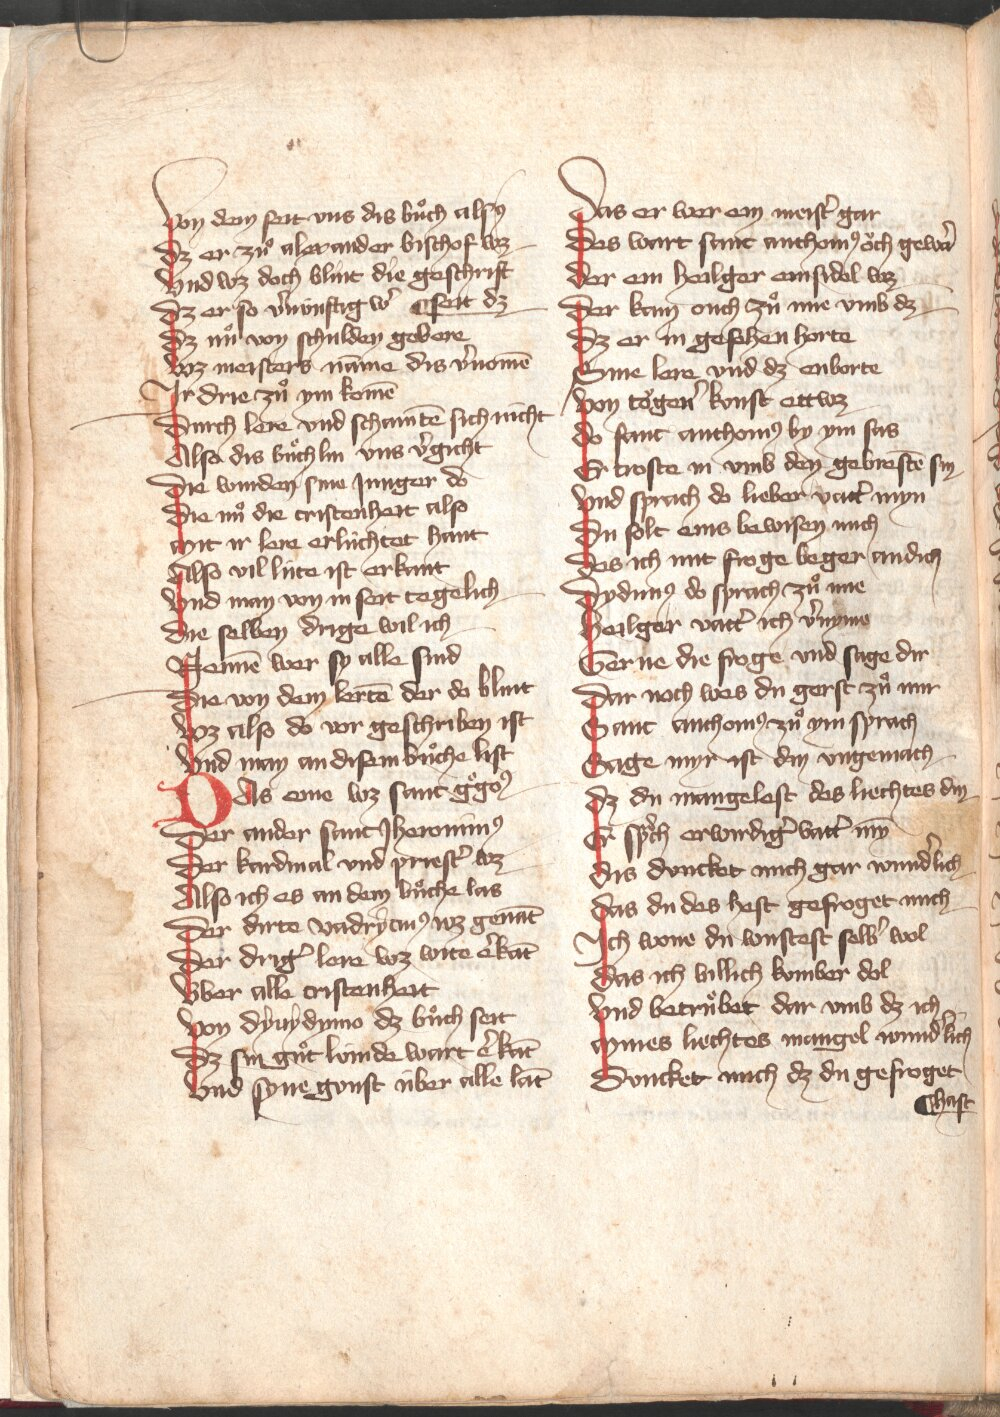 Von dem seit vns dis bůch alsꝰ
Dz er zů alexander bischof wz
Vnd wz doch blint die geschrift
Dz er so v̓nünftig w̓ seit dz
Dz nů von schulden gebere
Wz meisters name dis v̓nomē
Ir drie zů ym komē
Durch lere vnd schamtē sich nicht
Also dis bůchlin vns v̓gicht
Die wurden sine Junger do
Die nů die cristenheit also
Mit ir lere erlüchtet hant
Also vil lüte ist erkant
Vnd man von in seit tegelich
Die selben drige wil ich
Nemē wer sy alle sind
Die von dem lertē der do blint
Wz also do vor geschriben ist
Vnd man an disem bůche list
Das eine wz sant g̊goꝰ
Der ander sant Jheronimꝰ
Der kardinal vnd priest̓ wz
Also ich es an dem bůche las
Der dirte wz genāt
Der drig̓ lere wz wite e̓kāt
Vber alle cristenheit
Von dz bůch seit
Dz sin gůt wart e̓kāt
Vnd syne gunst über alle lāt
Das er wer ein meist̓ gar
Des wart sant anthoniꝰ öch gewar̓
Der ein heilger einsidel wz
Der kam ouch zů ime vmb dz
Dz er in gesehen horte
Sine lere vnd dz enborte
Von tögen̓ konst ettwz
Do sant anthoniꝰ by ym sas
Er troste in vmb den gebrestē sin
Vnd sprach do lieber vatt̓ myn
Du solt eins bewisen mich
Des ich mit froge beger an dich
Dydimꝰ do sprach zů ime
Heilger vatt̓ ich v̓nyme
Gerne die froge vnd sage dir
Dar noch wes du gerst zů mir
Sant anthoniꝰ zů ym sprach
Sage myr ist din vngemach
Dz du mangelest des liechtes din
Er sp̓ch erwirdig̓ vatt̓ my̅
Dis duncket mich gar wund̓lich
Das du des hest gefroget mich
Ich wone du wustest selb̓ wol
Das ich billich komber dol
Vnd betrůbet dar vmb dz ich
Mines liechtes mangel wund̓lich
Duncket mich dz du gefroget
hast